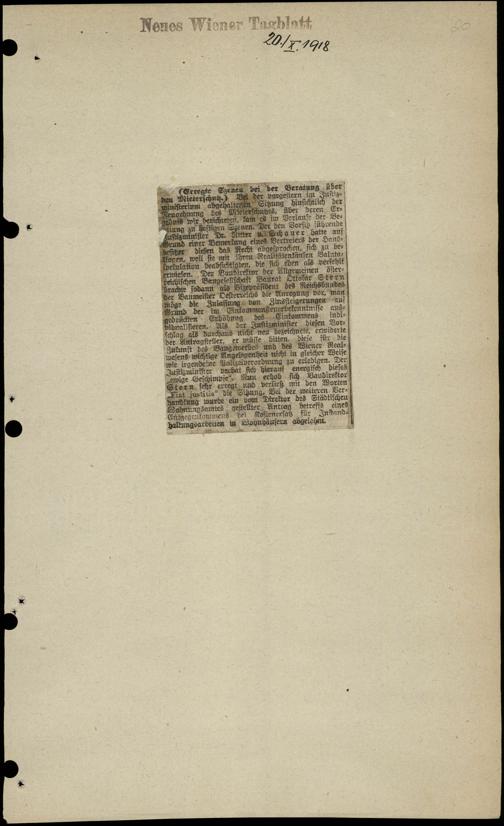 Neues Wiener Tagblatt
20./X. 1918
20
(Erregte Szenen bei der Beratung über
den Mieterschutz.) Bei der vorgestern im Justiz-
ministerium abgehaltenen Sitzung hinsichtlich der
Neuordnung des Mieterschutzes, über deren Er-
gebnis wir berichteten, kam es im Verlaufe der Be-
ratung zu heftigen Szenen. Der den Vorsitz führende
Justizminister Dr. Ritter v. Schauer hatte auf
Grund einer Bemerkung eines Vertreters der Haus-
besitzer diesen das Recht abgesprochen, sich zu be-
klagen, weil sie mit ihren Realitätenkäufen Valuta-
spekulation beabsichtigten, die sich eben als verfehlt
erwiesen. Der Baudirektor der Allgemeinen öster-
reichischen Baugesellschaft Baurat Ottokar Stern
brachte sodann als Vizepräsident des Reichsbundes
der Baumeister Oesterreichs die Anregung vor, man
möge die Zulassung von Zinssteigerungen auf
Grund der im Einkommensteuerbekenntnisse aus-
gedrückten Erhöhung des Einkommens indi-
vidualisieren. Als der Justizminister diesen Vor-
schlag als durchaus nicht neu bezeichnete, erwiderte
der Antragsteller, er müsse bitten, diese für die
Zukunft des Baugewerbes und des Wiener Real-
wesens wichtige Angelegenheit nicht in gleicher Weise
wie irgendeine Polizeiverordnung zu erledigen. Der
Justizminister verbat sich hierauf energisch dieses
„ewige Geschimpfe“. Nun erhob sich Baudirektor
Stern sehr erregt und verließ mit den Worten
„Fiat justitia“ die Sitzung. Bei der weiteren Ver-
handlung wurde ein vom Direktor des Städtischen
Wohnungsamtes gestellter Antrag betreffs eines
Entgegenkommens bei Kostenersatz für Instand-
haltungsarbeiten in Wohnhäusern abgelehnt.